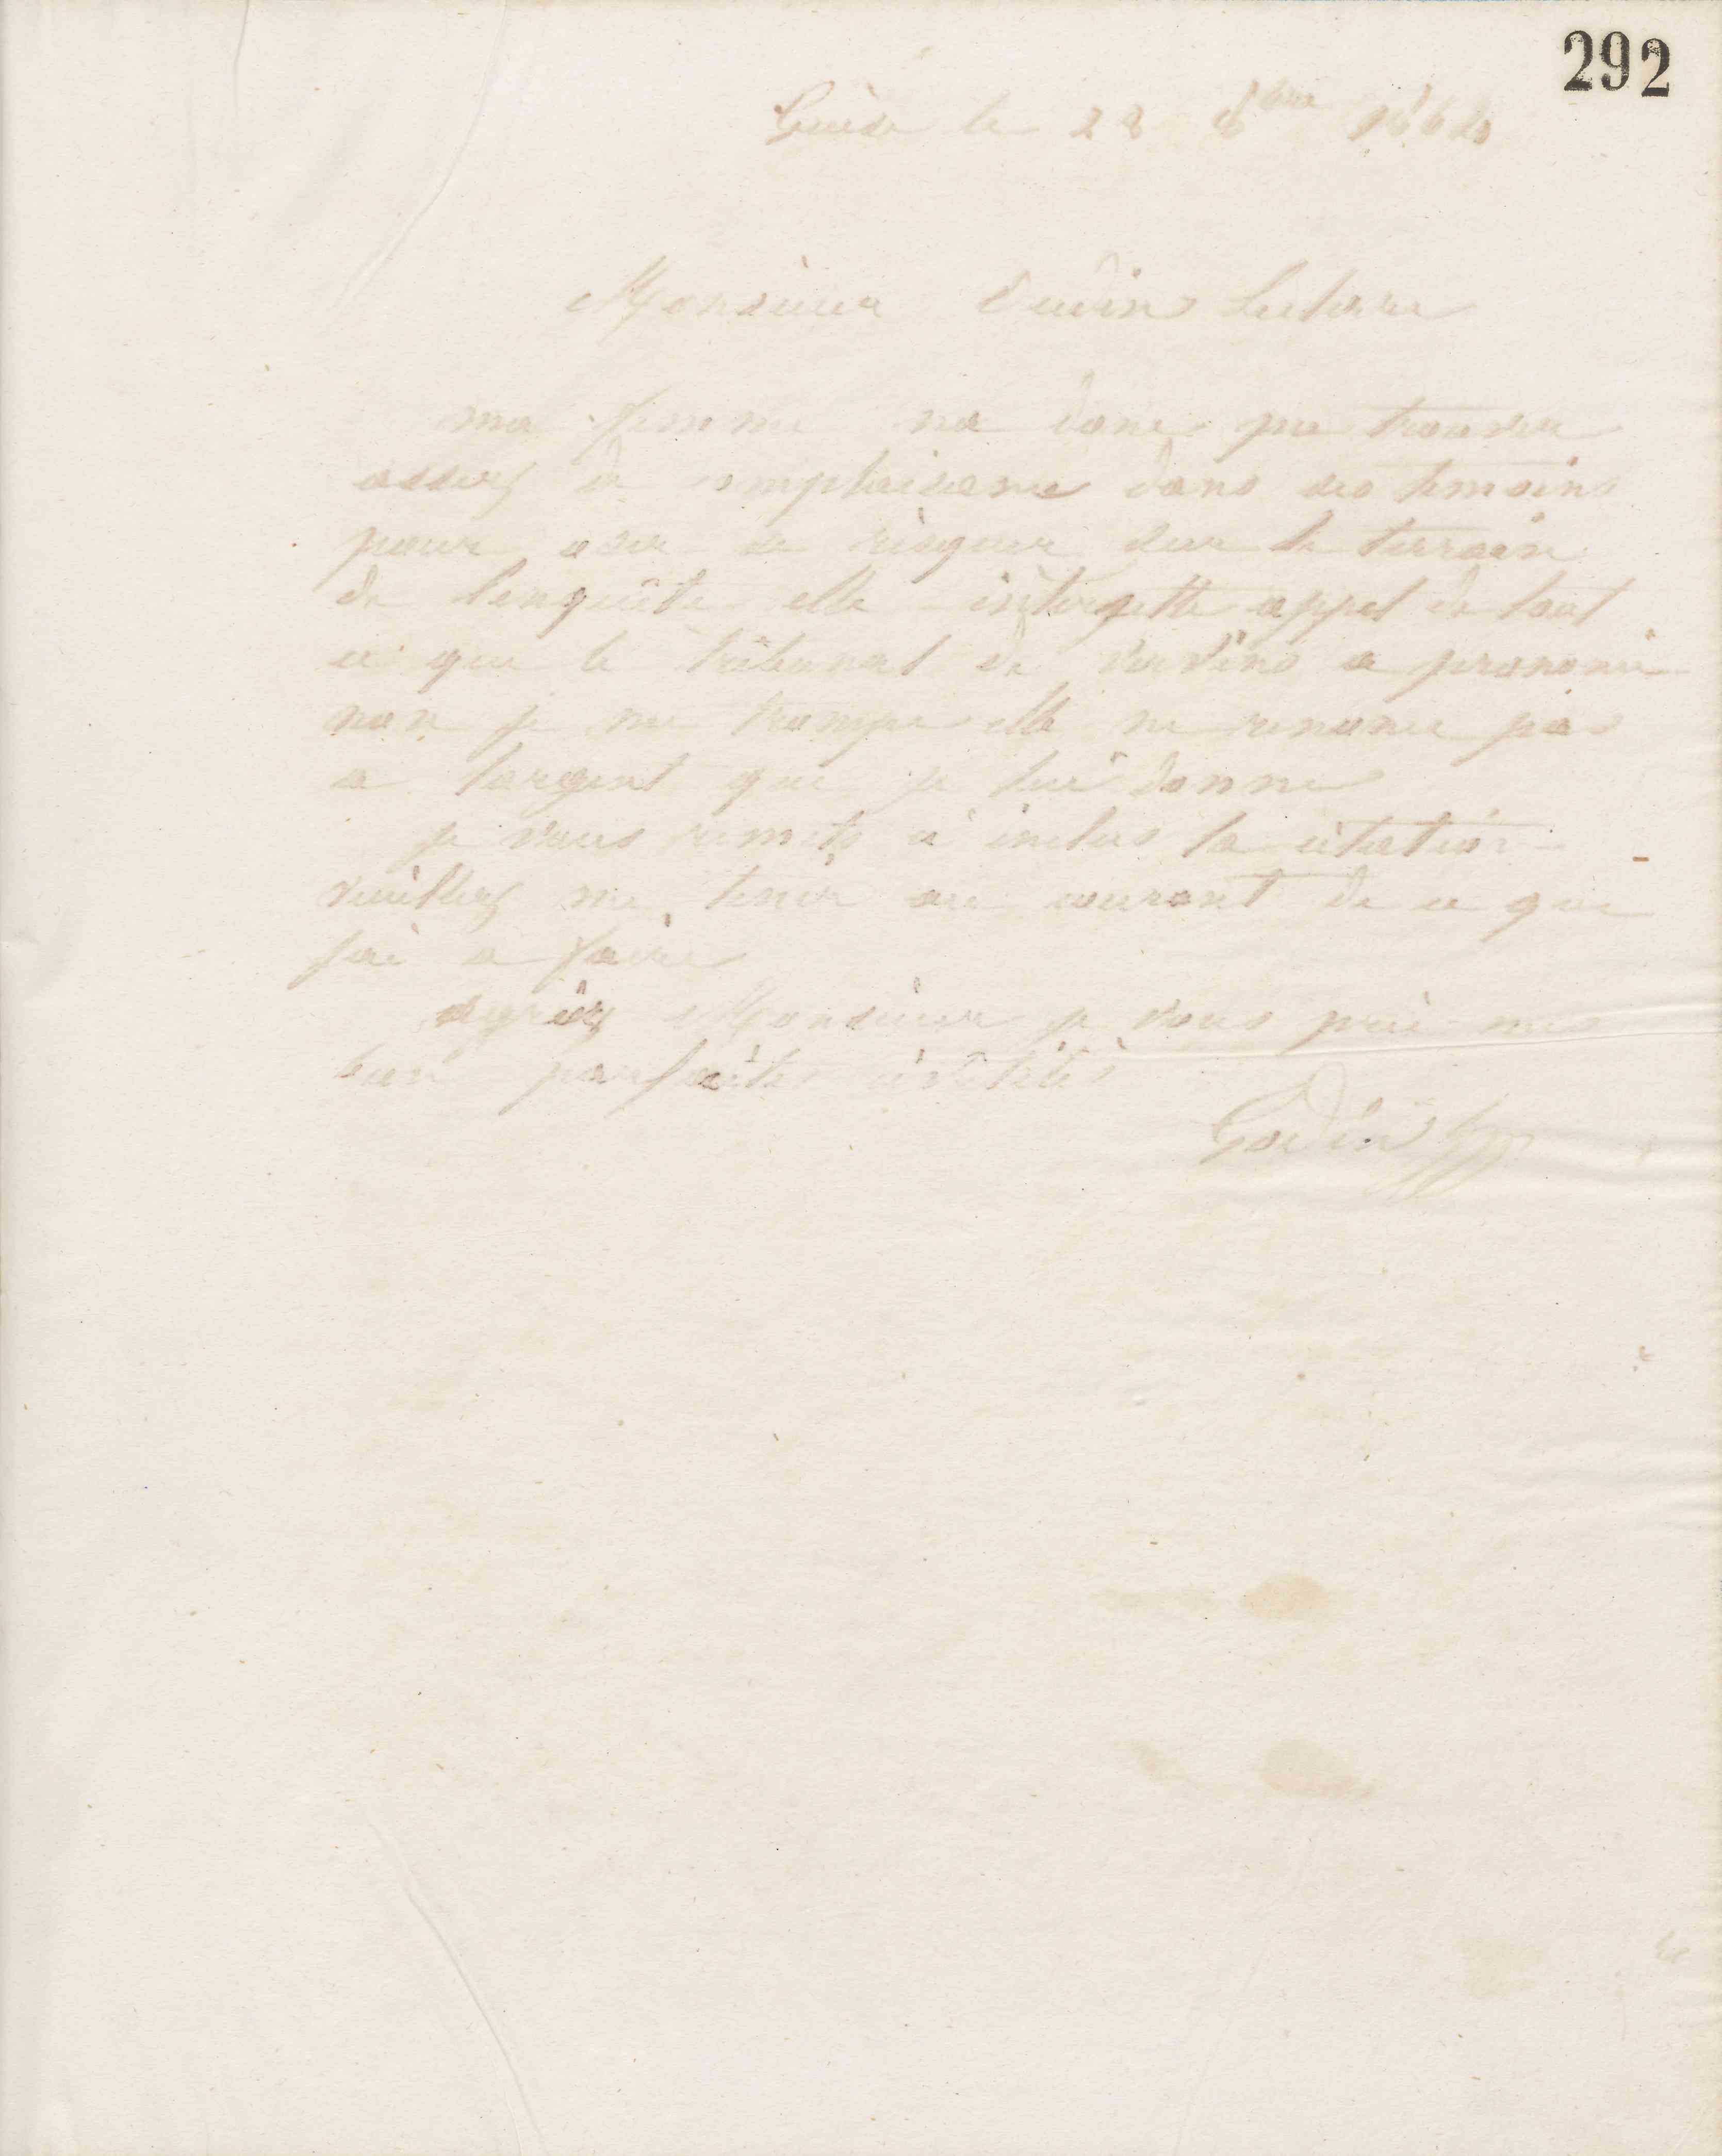 292
Guise le 28 8bre 1864
Monsieur Oudin Leclere
ma femme na donc pu trouver
assez de complaisance dans ses temoins
pour oser se risquer sur le terrain
de l'enquête elle interjette appel de tout
ce que le tribunal de Vervins a prononcé
non je me trompe elle ne renonce pas
a largent que je lui donne
je vous remets ci inclus la citation
veuillez me tenir au courant de ce que
jai a faire
agréez Monsieur je vous prie mes
parfaites civilités
Godin